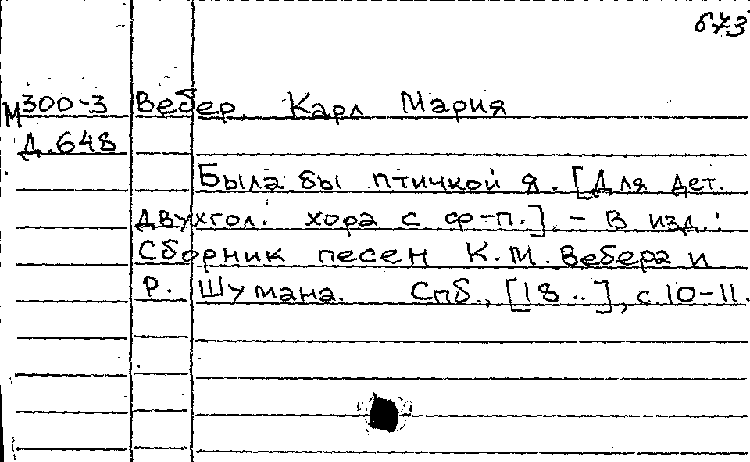 673
М300-3 Вебер, Карл Мария
Д.648
Была бы птичкой я. [Для дет.
двухгол. хора с ф-п.]. - В изд.:
Сборник песен К.М. Вебера и
Р. Шумана. Спб., [18..], с.10-11.